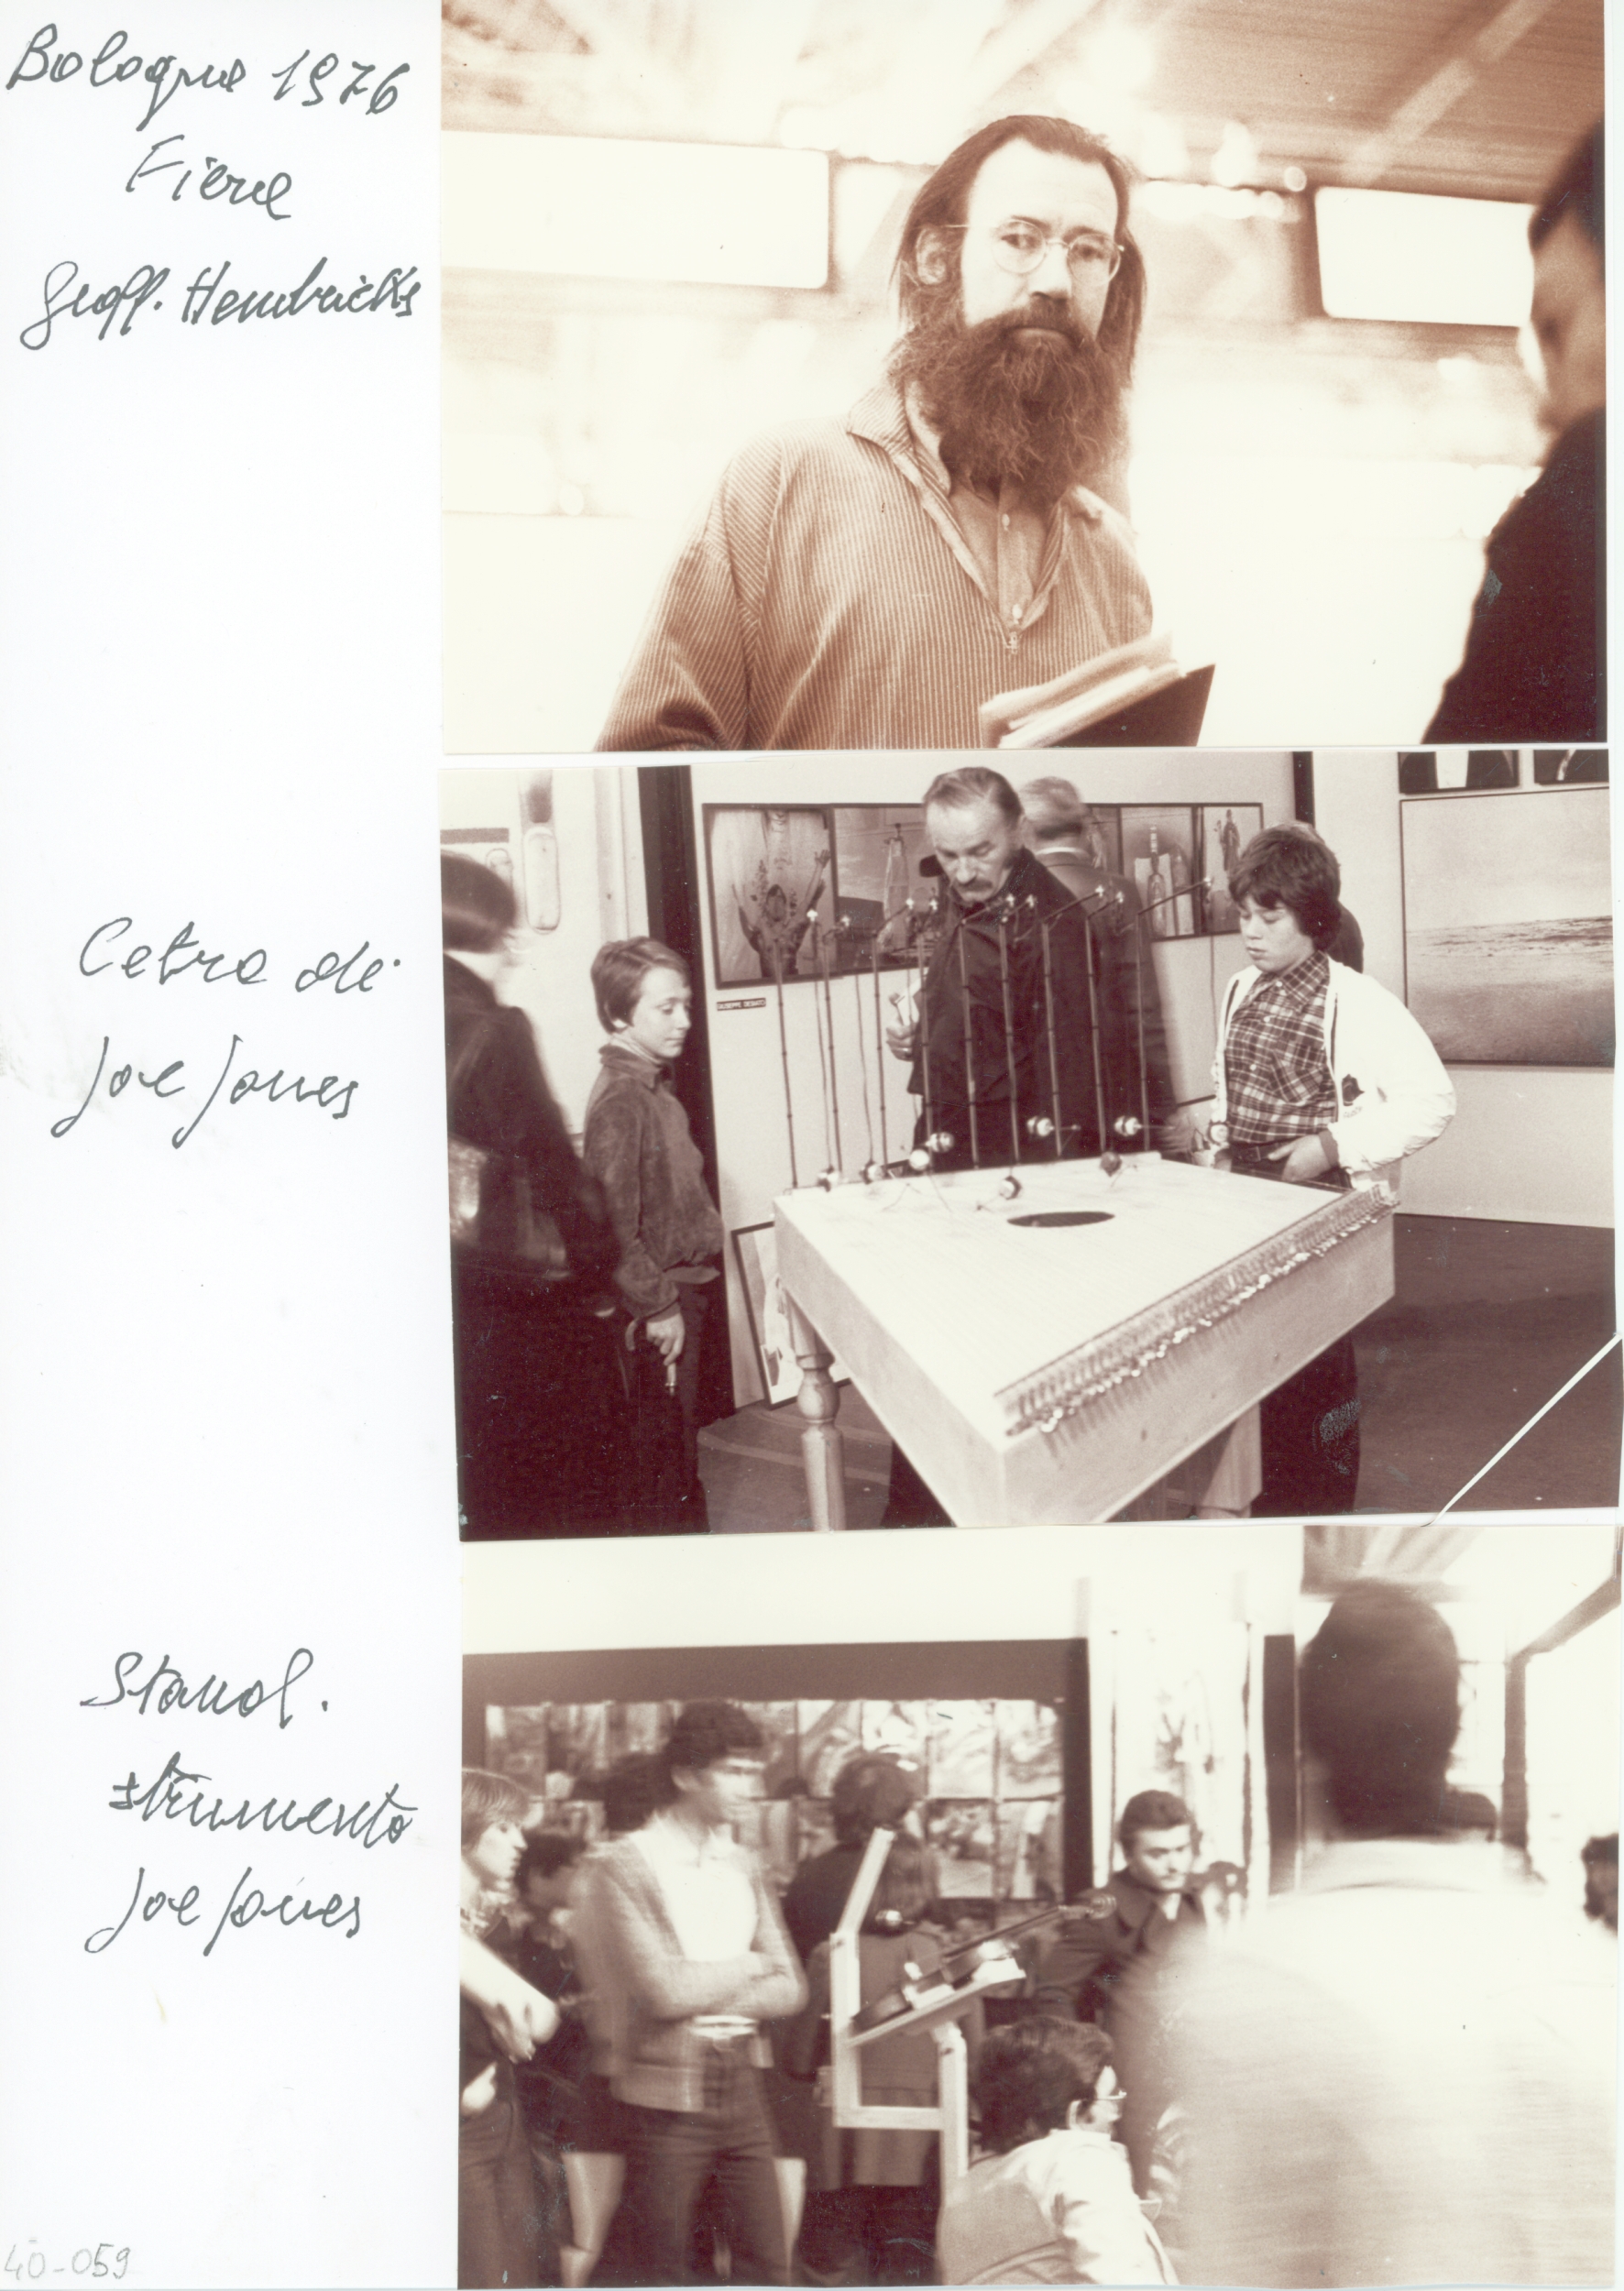 Bologna 1976
Fiera
Geoff. Hendricks
Cetra di
Joe Jones
GIUSEPPE DESIATO
Stand.
strumento
Joe Jones
40-059